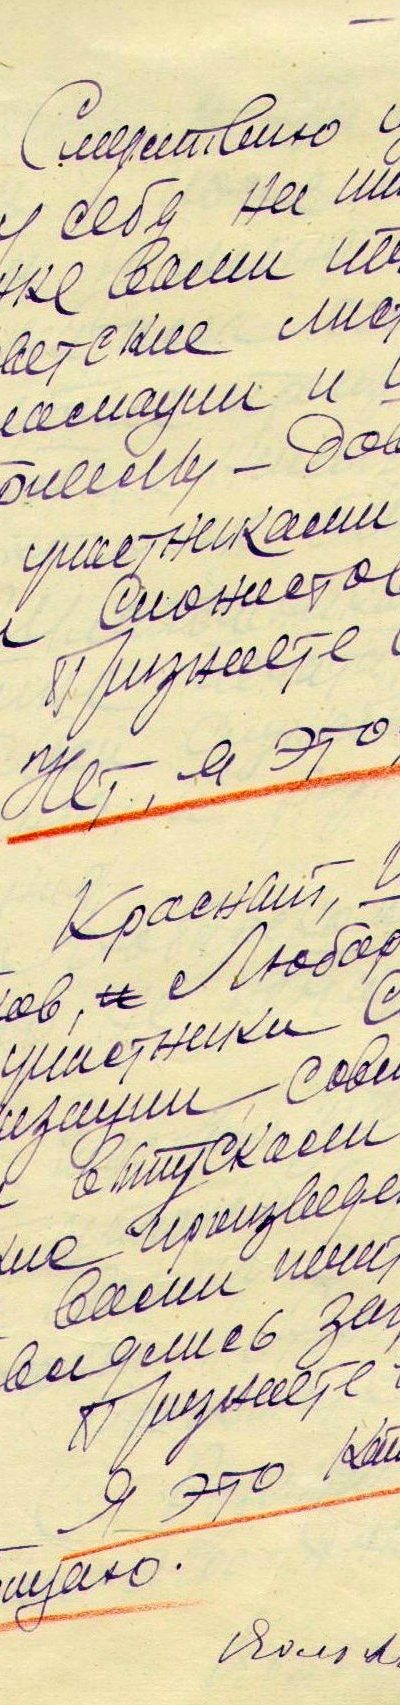 Следствию у
у себя на
же вами
ветские лист
ламации и
этому – дов
участниками
и сионистов
Признаете
"Нет, я это
Краснит,
ков, и Любар
участники С
изации, совм
и выпускали
кие произведе
вами
вались
Признаете
Я это кат
рицаю.